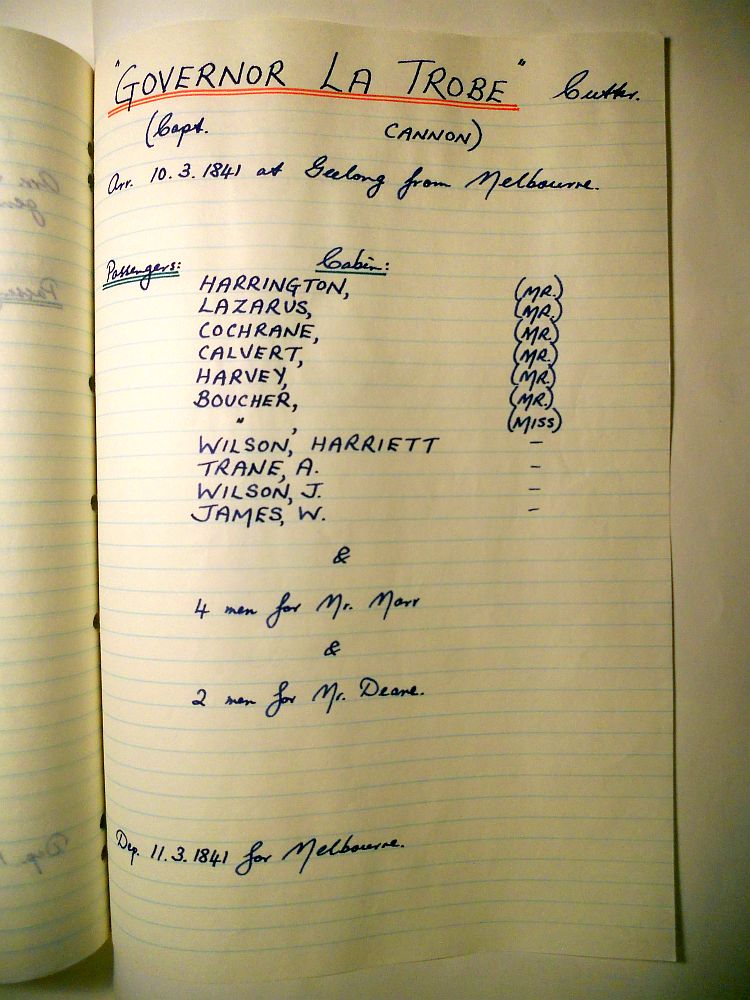 "GOVERNOR LA TROBE" Cutter.
(Capt. CANNON)
Arr. 10.3.1841 at Geelong from Melbourne.
Passengers: Cabin:
HARRINGTON, (MR.)
LAZARUS, (MR.)
COCHRANE, (MR.)
CALVERT, (MR.)
HARVEY, (MR.)
BOUCHER, (MR.)
" , (MISS)
WILSON, HARRIETT -
TRANE, A. -
WILSON, J. -
JAMES, W. -
&
4 men for Mr. Marr
&
2 men for Mr. Deane.
Dep. 11.3.1841 for Melbourne.